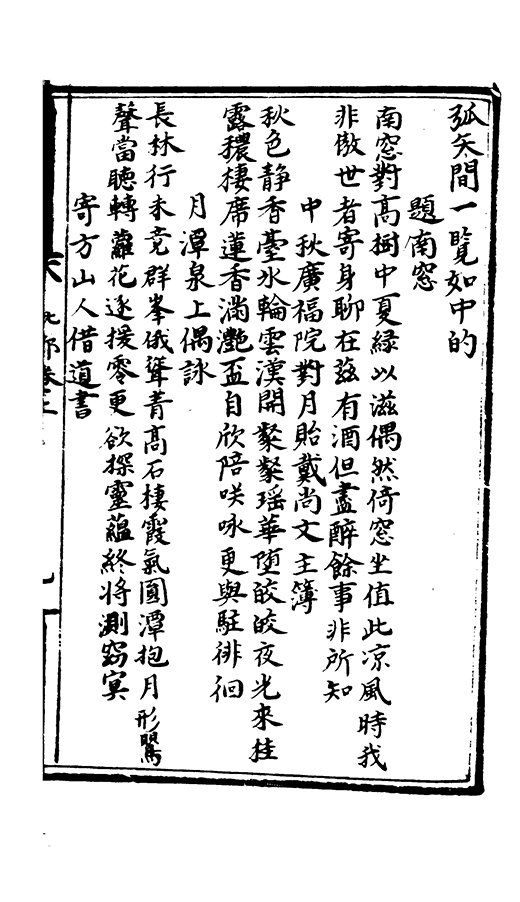 弧矢間一覽如中的
題南窓
南窓對高樹中夏綠以滋偶然倚窓坐值此凉風時我
非傲世者寄身聊在兹有酒但盡醉餘事非所知
中秋廣福院對月貽戴尚文主簿
秋色静香臺氷輪雲漢開粲粲瑶華堕皎皎夜光來桂
露穠棲席蓮香滿灔盃自欣陪咲咏更與駐徘徊
月潭泉上偶詠
長林行未竟群峯俄聳青高石棲霞氣圓潭抱月形鶯
聲當聽轉蘿花逐援零更欲探靈蘊終將測窈冥
寄方山人借道書